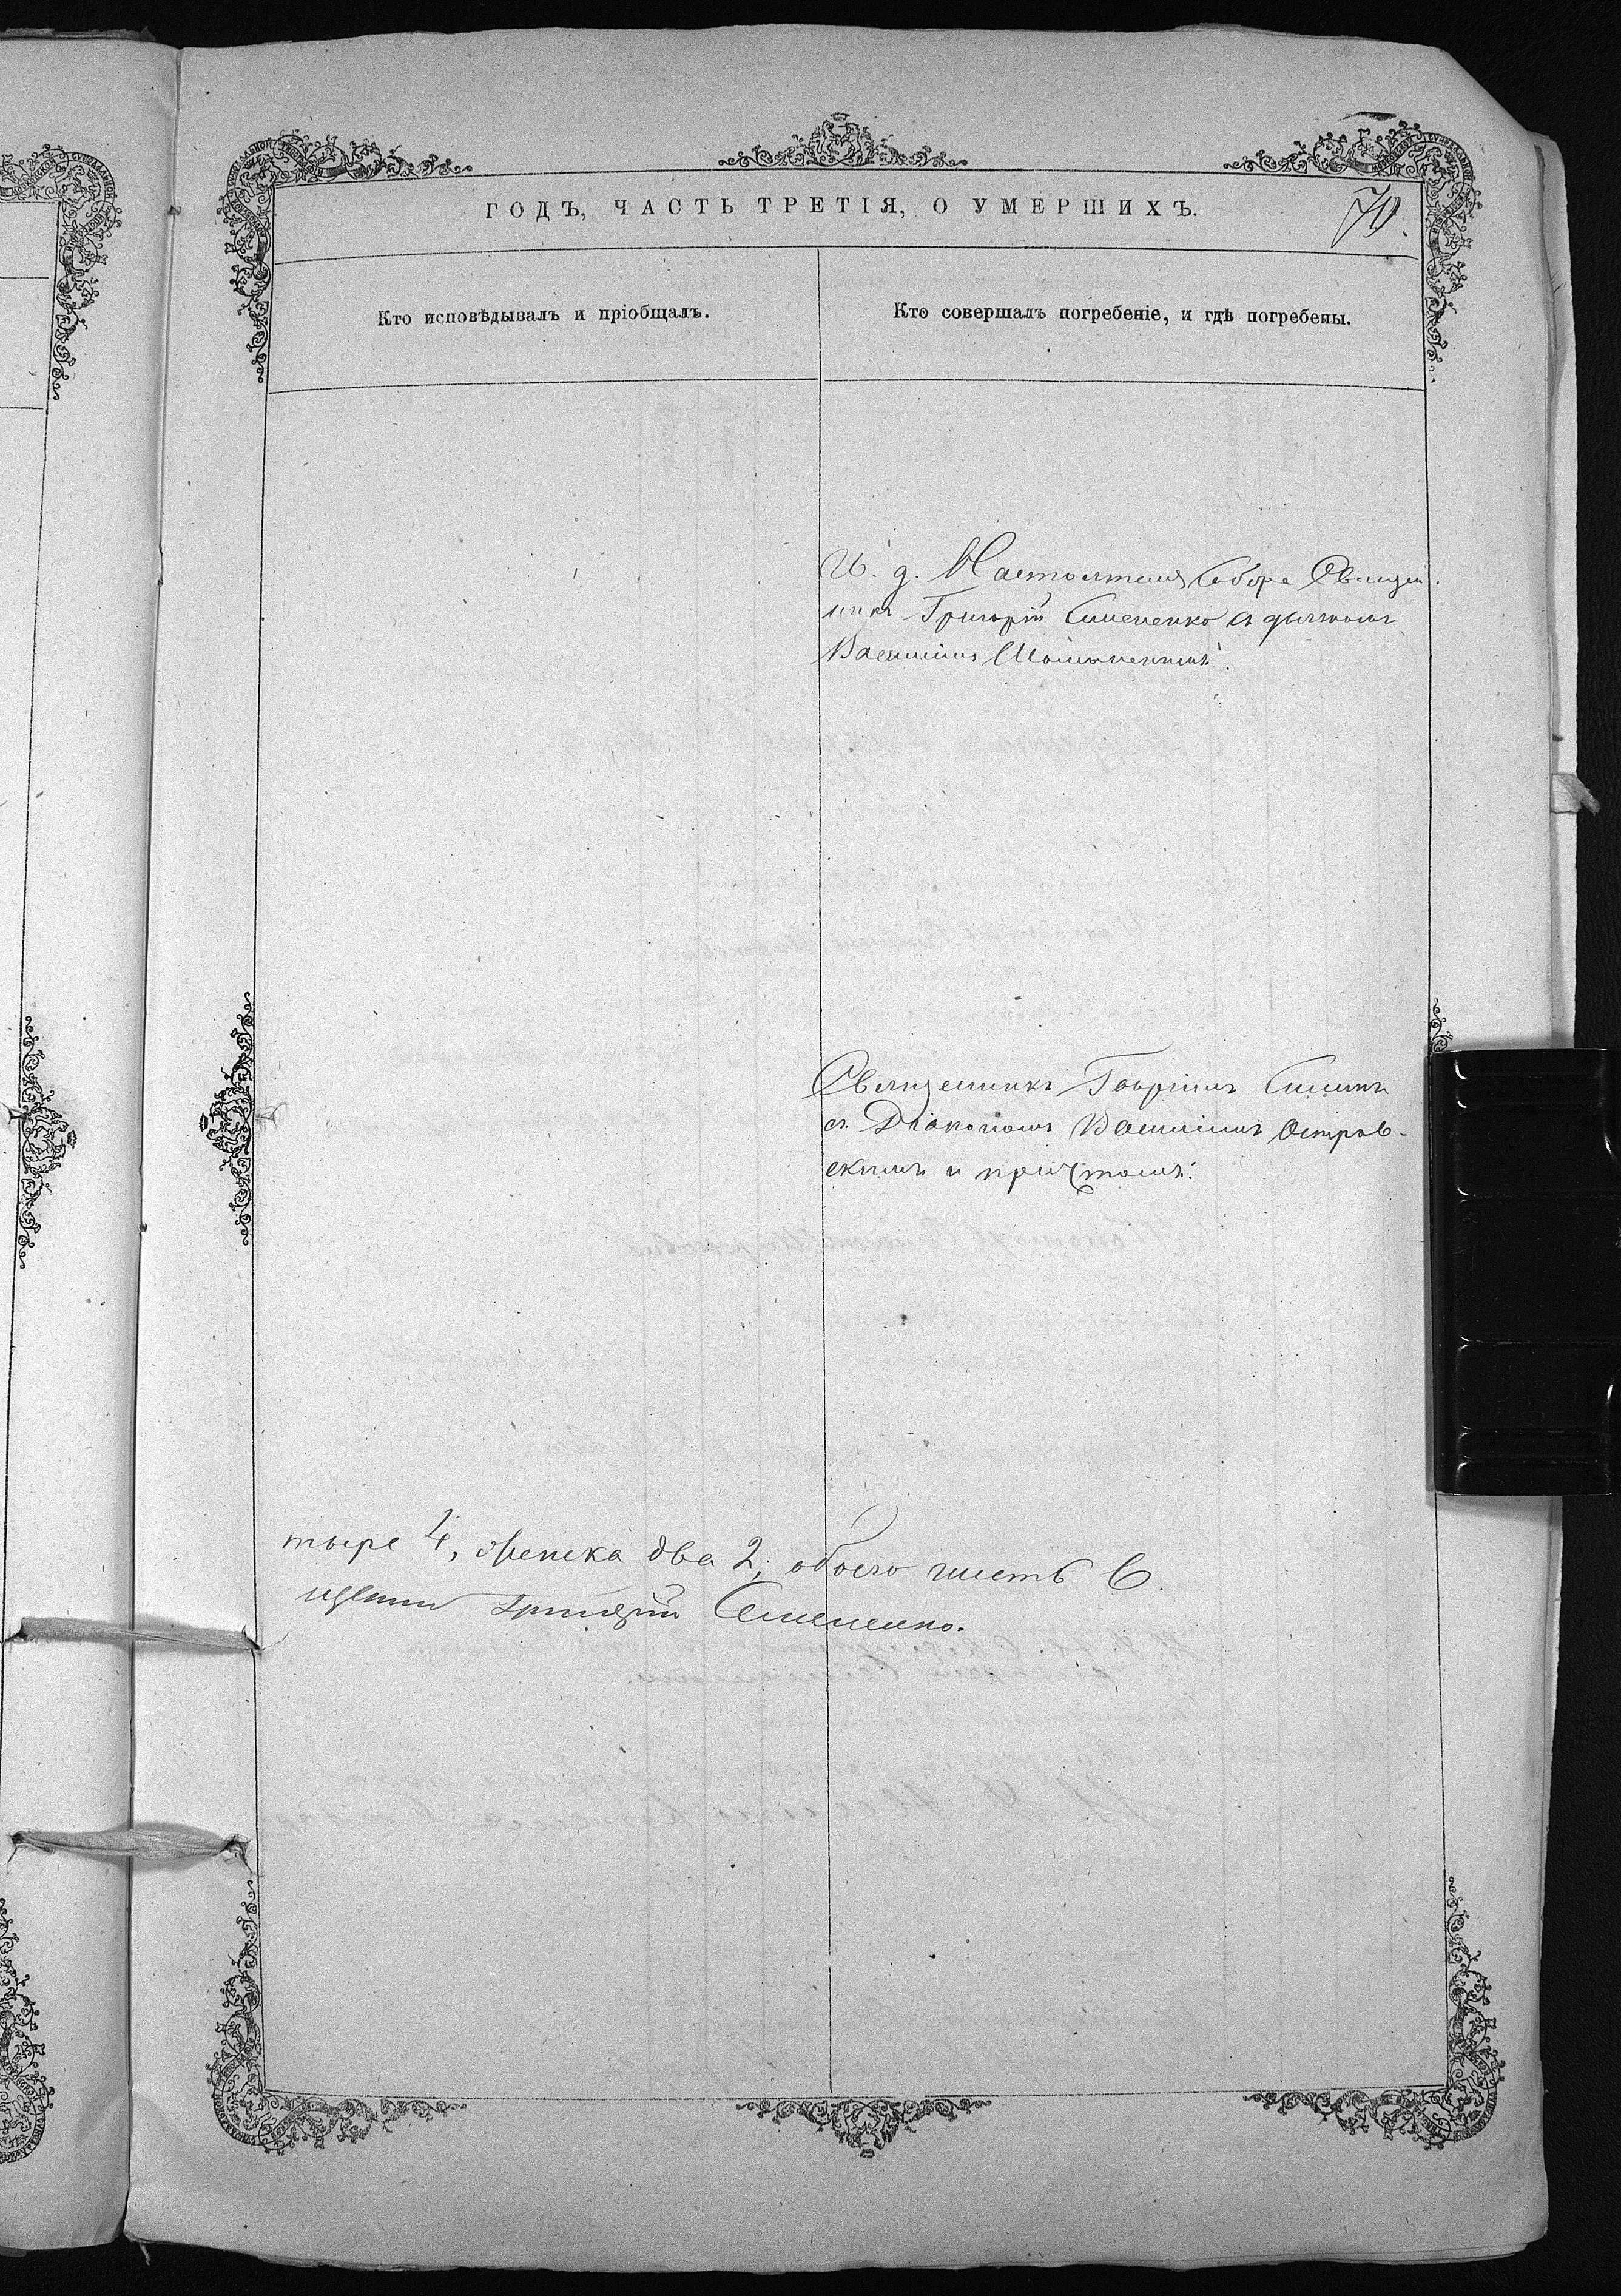 ГОДЪ, ЧАСТЬ ТРЕТІЯ, О УМЕРШИХЪ.
70.
Кто исповѣдывалъ и пріобщалъ.
Кто совершалъ погребеніе, и гдѣ погребены.
И. д. Настоятеля Собора Священ
никъ Григорій Симененко съ дьячкомъ
Василіемъ
Священникъ Георгій Симонъ
съ Діакономъ Василіемъ Остров-
скимъ и причтомъ.
тыре 4, женска два 2, обоего шесть 6.
Григорій Семененко.